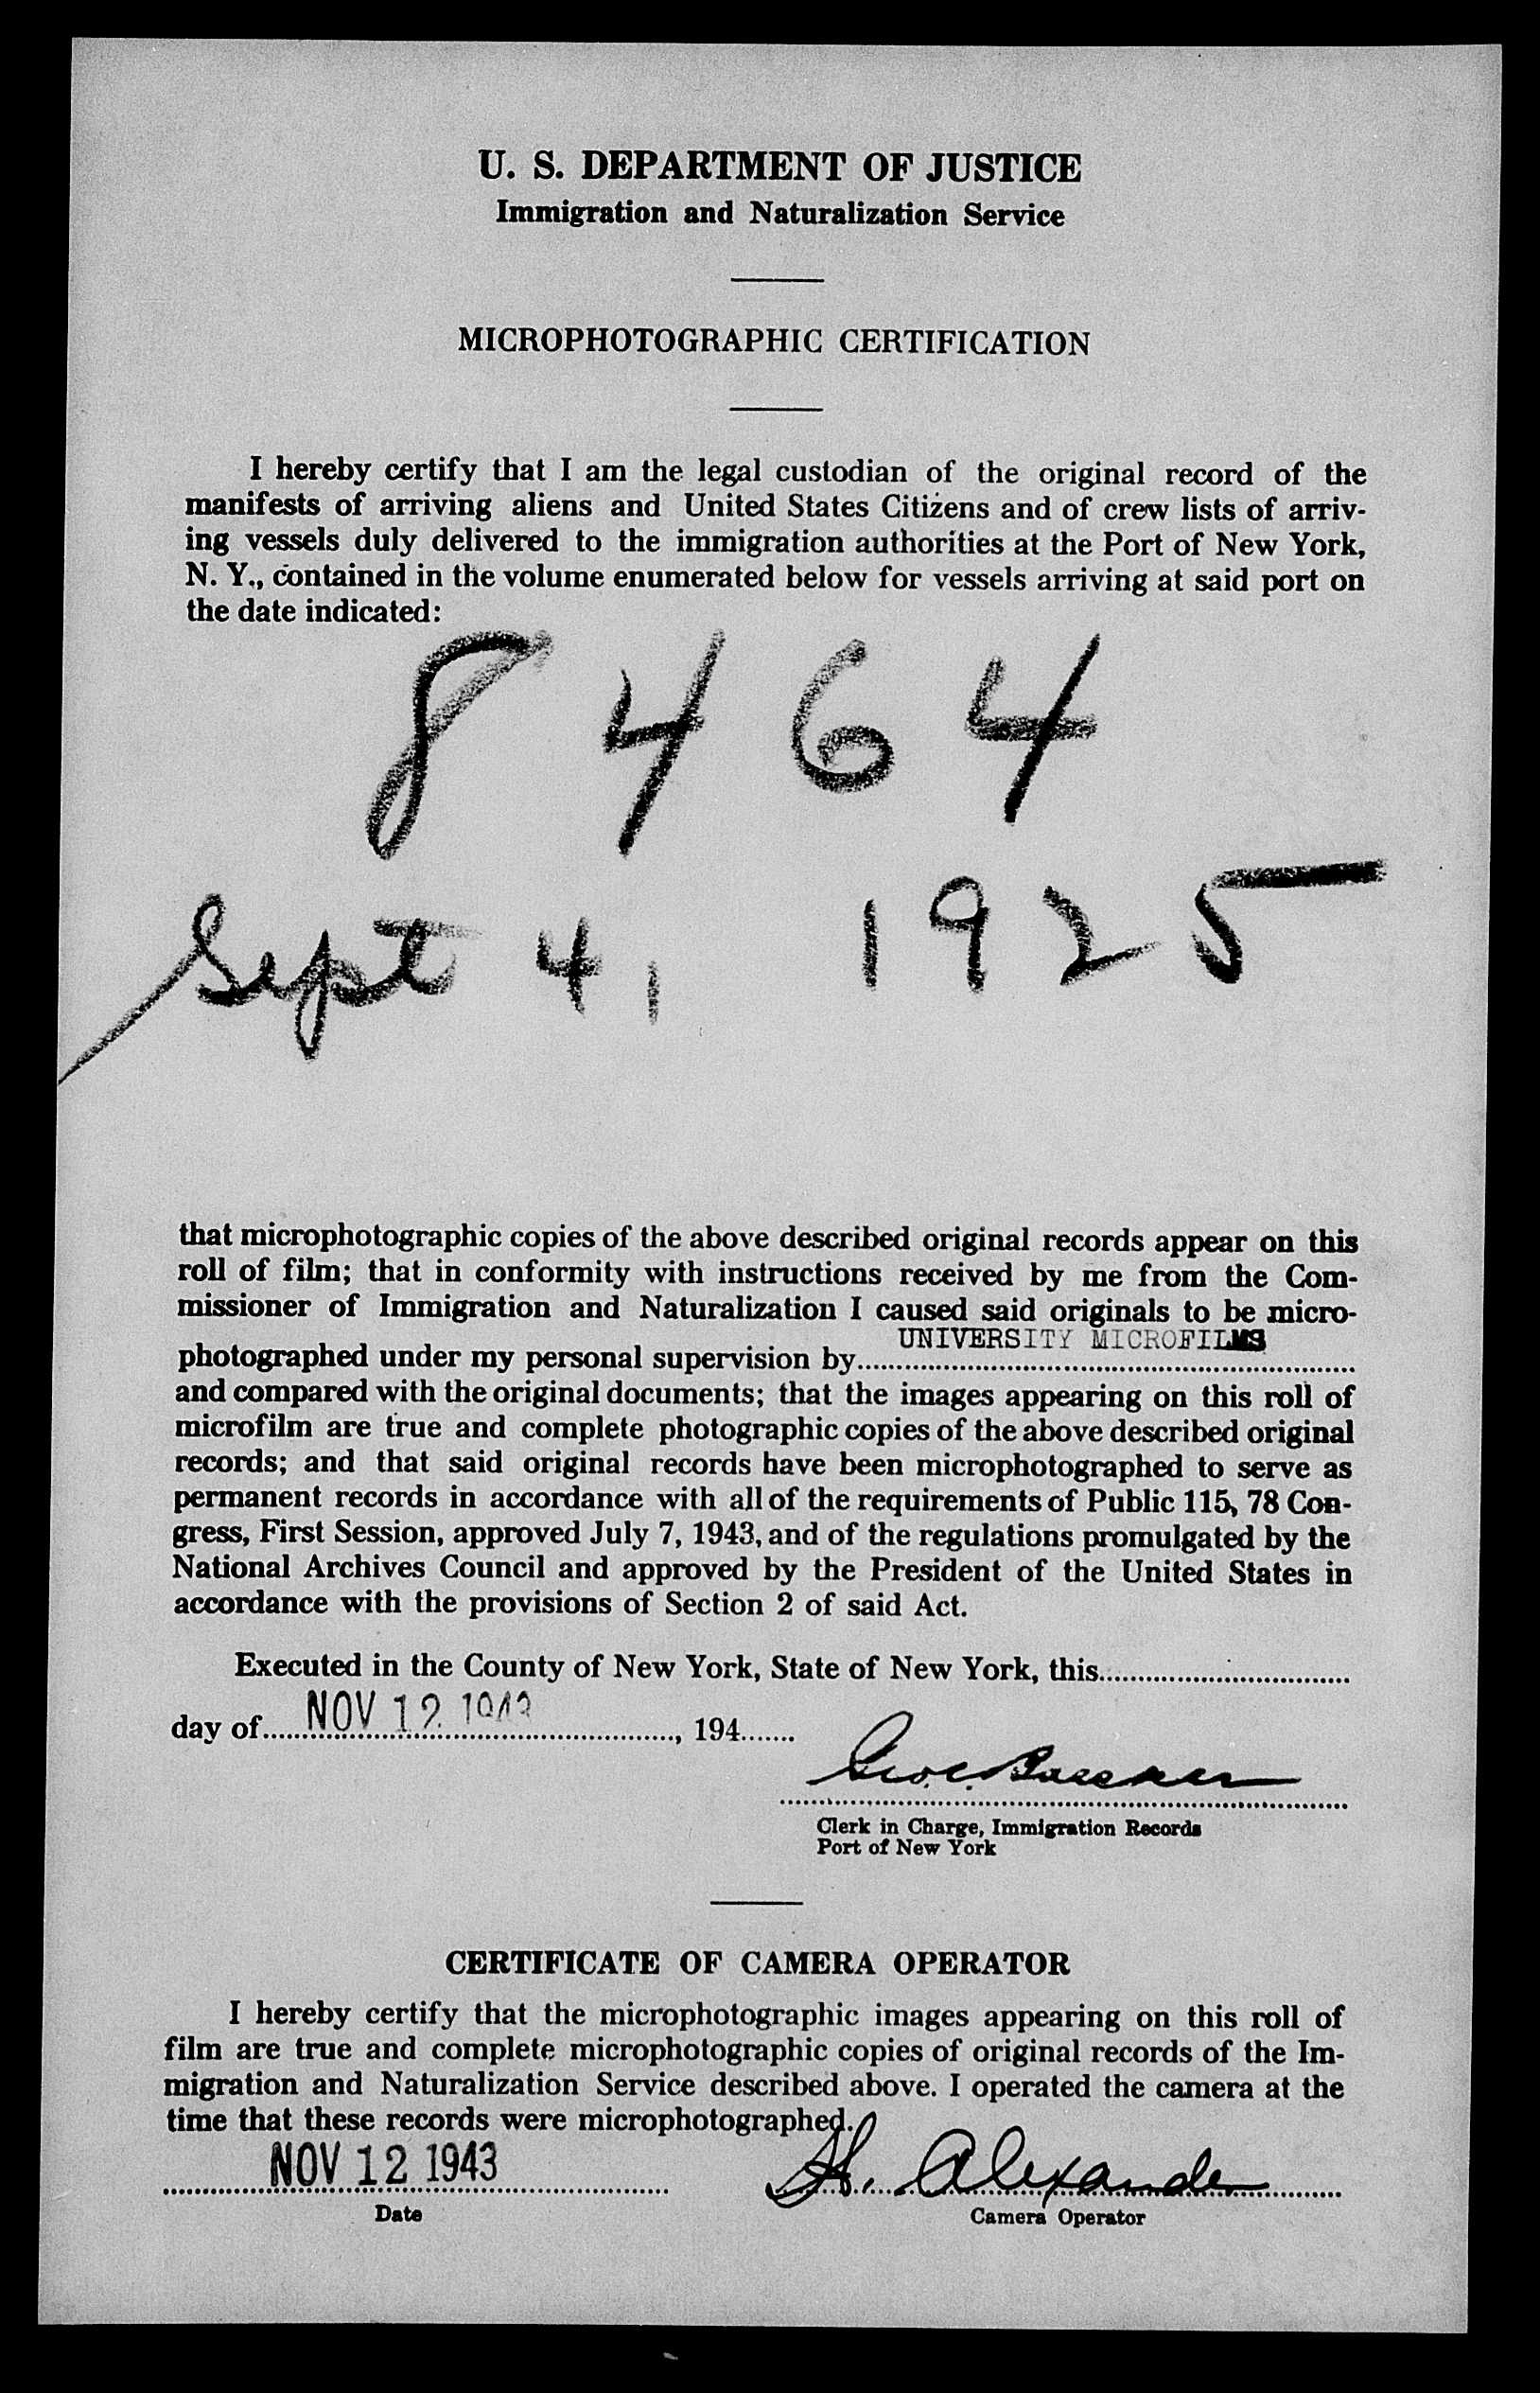 U. S. DEPARTMENT OF JUSTICE
Immigration and Naturalization Service
MICROPHOTOGRAPHIC CERTIFICATION
I hereby certify that I am the legal custodian of the original record of the
manifests of arriving aliens and United States Citizens and of crew lists of arriv-
ing vessels duly delivered to the immigration authorities at the Port of New York,
N. Y., contained in the volume enumerated below for vessels arriving at said port on
the date indicated:
8464
Sept 4, 1925
that microphotographic copies of the above described original records appear on this
roll of film; that in conformity with instructions received by me from the Com-
missioner of Immigration and Naturalization I caused said originals to be micro-
UNIVERSITY MICROFILMS
photographed under my personal supervision by
and compared with the original documents; that the images appearing on this roll of
microfilm are true and complete photographic copies of the above described original
records; and that said original records have been microphotographed to serve as
permanent records in accordance with all of the requirements of Public 115, 78 Con-
gress, First Session, approved July 7, 1943, and of the regulations promulgated by the
National Archives Council and approved by the President of the United States in
accordance with the provisions of Section 2 of said Act.
Executed in the County of New York, State of New York, this
day of NOV 12 1943, 194
Clerk in Charge, Immigration Records
Port of New York
CERTIFICATE OF CAMERA OPERATOR
I hereby certify that the microphotographic images appearing on this roll of
film are true and complete microphotographic copies of original records of the Im-
migration and Naturalization Service described above. I operated the camera at the
time that these records were microphotographed.
NOV 12 1943 H. Alexander
Date Camera Operator